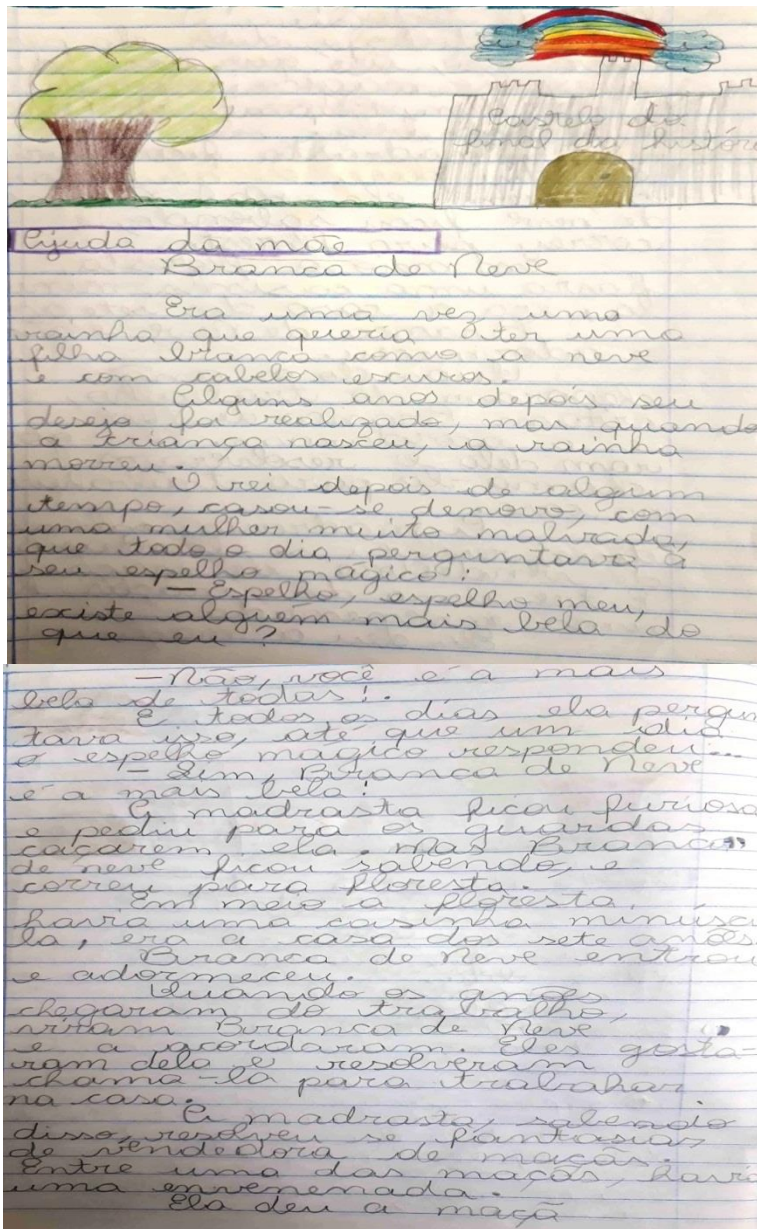 Castelo do
final da históri
Ajuda da mãe
Branca de Neve
Era uma vez uma
rainha que queria ter uma
filha branca como a neve
e com cabelos escuros.
Alguns anos depois seu
desejo foi realizado, mas quando
a criança nasceu, a rainha
morreu.
O rei depois de algum
tempo, casou-se denovo, com
uma mulher muito malvada,
que todo o dia perguntava a
seu espelho mágico:
- Espelho, espelho meu,
existe alguém mais bela do
que eu?
- Não, você é a mais
bela de todas!.
E todos os dias ela pergun
tava isso, até que um dia
o espelho mágico respondeu...
- Sim, Branca de Neve
é a mais bela!
A madrasta ficou furiosa
e pediu para os guardas
caçarem ela. Mas Branca
de neve ficou sabendo, e
correu para floresta.
Em meio a floresta,
havia uma casinha minúscu
la, era a casa dos sete anões.
Branca de Neve entrou
e adormeceu.
Quando os anões
chegaram do trabalho,
viram Branca de Neve
e a acordaram. Eles gosta-
ram dela e resolveram
chama-la para trabahar
na casa.
A madrasta, sabendo
disso, resolveu se fantasiar
de vendedora de maçãs.
Entre uma das maçãs, havia
uma envenenada.
Ela deu a maçã